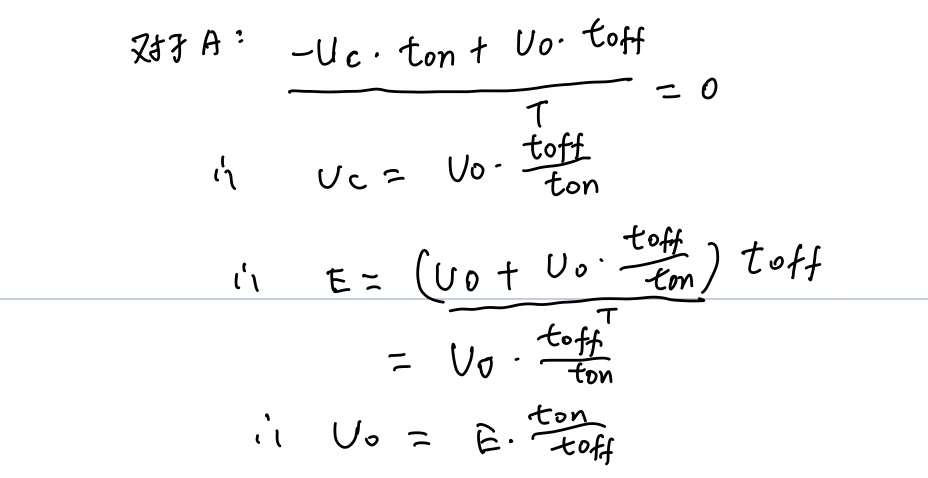 对于 A： (-Uc · ton + Uo · toff) / T = 0
∴ Uc = Uo · toff / ton
∴ E = (Uo + Uo · toff / ton) toff / T
= Uo · toff / ton
∴ Uo = E · ton / toff